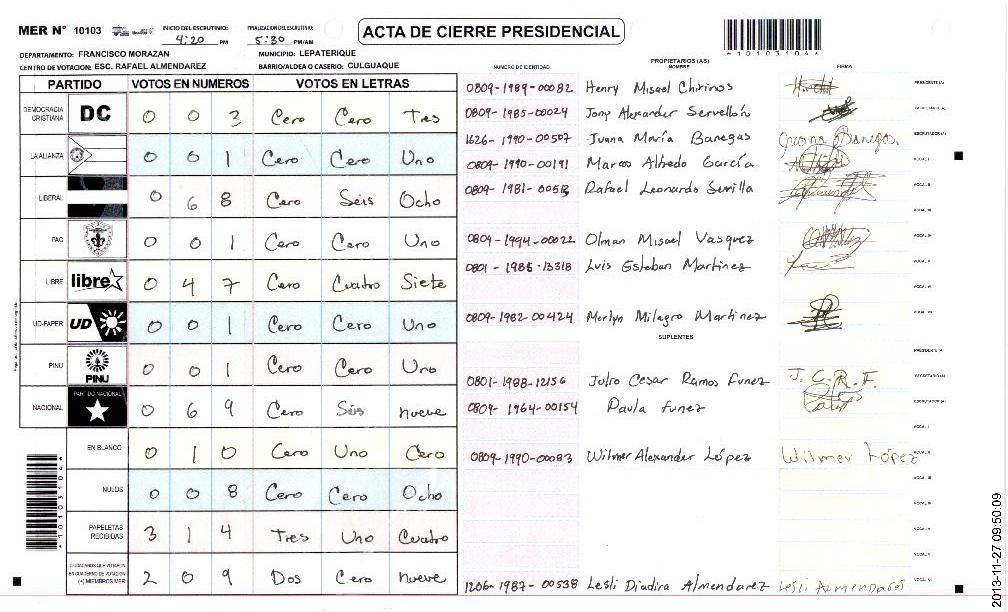 MER N° 10103
INICIO DEL ESCRUTINIO: 4:20 PM
FINALIZACION DEL ESCRUTINIO: 5:30 PM/AM
ACTA DE CIERRE PRESIDENCIAL
*10103104*
DEPARTAMENTO: FRANCISCO MORAZAN
MUNICIPIO: LEPATERIQUE
CENTRO DE VOTACION: ESC. RAFAEL ALMENDAREZ
BARRIO/ALDEA O CASERIO: CULGUAQUE
PARTIDO VOTOS EN NUMEROS VOTOS EN LETRAS
DEMOCRACIA CRISTIANA DC 0 0 3 Cero Cero Tres
LA ALIANZA 0 0 1 Cero Cero Uno
LIBERAL 0 6 8 Cero Séis Ocho
PAC 0 0 1 Cero Cero Uno
LIBRE libre 0 4 7 Cero Cuatro Siete
UD-FAPER UD 0 0 1 Cero Cero Uno
PINU PINU 0 0 1 Cero Cero Uno
NACIONAL PARTIDO NACIONAL 0 6 9 Cero Séis nueve
EN BLANCO 0 1 0 Cero Uno Cero
NULOS 0 0 8 Cero Cero Ocho
PAPELETAS RECIBIDAS 3 1 4 Tres Uno Cuatro
CIUDADANOS QUE VOTARON EN CUADERNO DE VOTACION (+) MIEMBROS MER 2 0 9 Dos Cero nueve
*10103104*
PROPIETARIOS (AS)
NUMERO DE IDENTIDAD NOMBRE FIRMA
0809-1989-00082 Henry Misael Chirinos PRESIDENTE(A)
0809-1985-00024 Jony Alexander Servellón
1626-1990-00507 Juana María Banegas Juana Banegas ESCRUTADOR(A)
0809-1990-00191 Marco Albedo García VOCAL I
0809-1981- Rafael Leonardo Sevilla VOCAL II
VOCAL III
0809-1994-00022 Olman Misael Vasquez VOCAL IV
0801-1986-13318 Luis Esteban Martinez VOCAL V
VOCAL VI
0809-1982-00424 Merlyn Milagro Martinez
SUPLENTES
PRESIDENTE(A)
0801-1988-12156 Julio Cesar Ramos Funez J. C. R. F. SECRETARIO(A)
0809-1964-00154 Paula funez ESCRUTADOR(A)
VOCAL I
0809-1990-00083 Wilmer Alexander López Wilmer López VOCAL II
1206-1987-00538 Lesli Diadira Almendarez Lesli Almendares VOCAL VI
2013-11-27 09:50:09